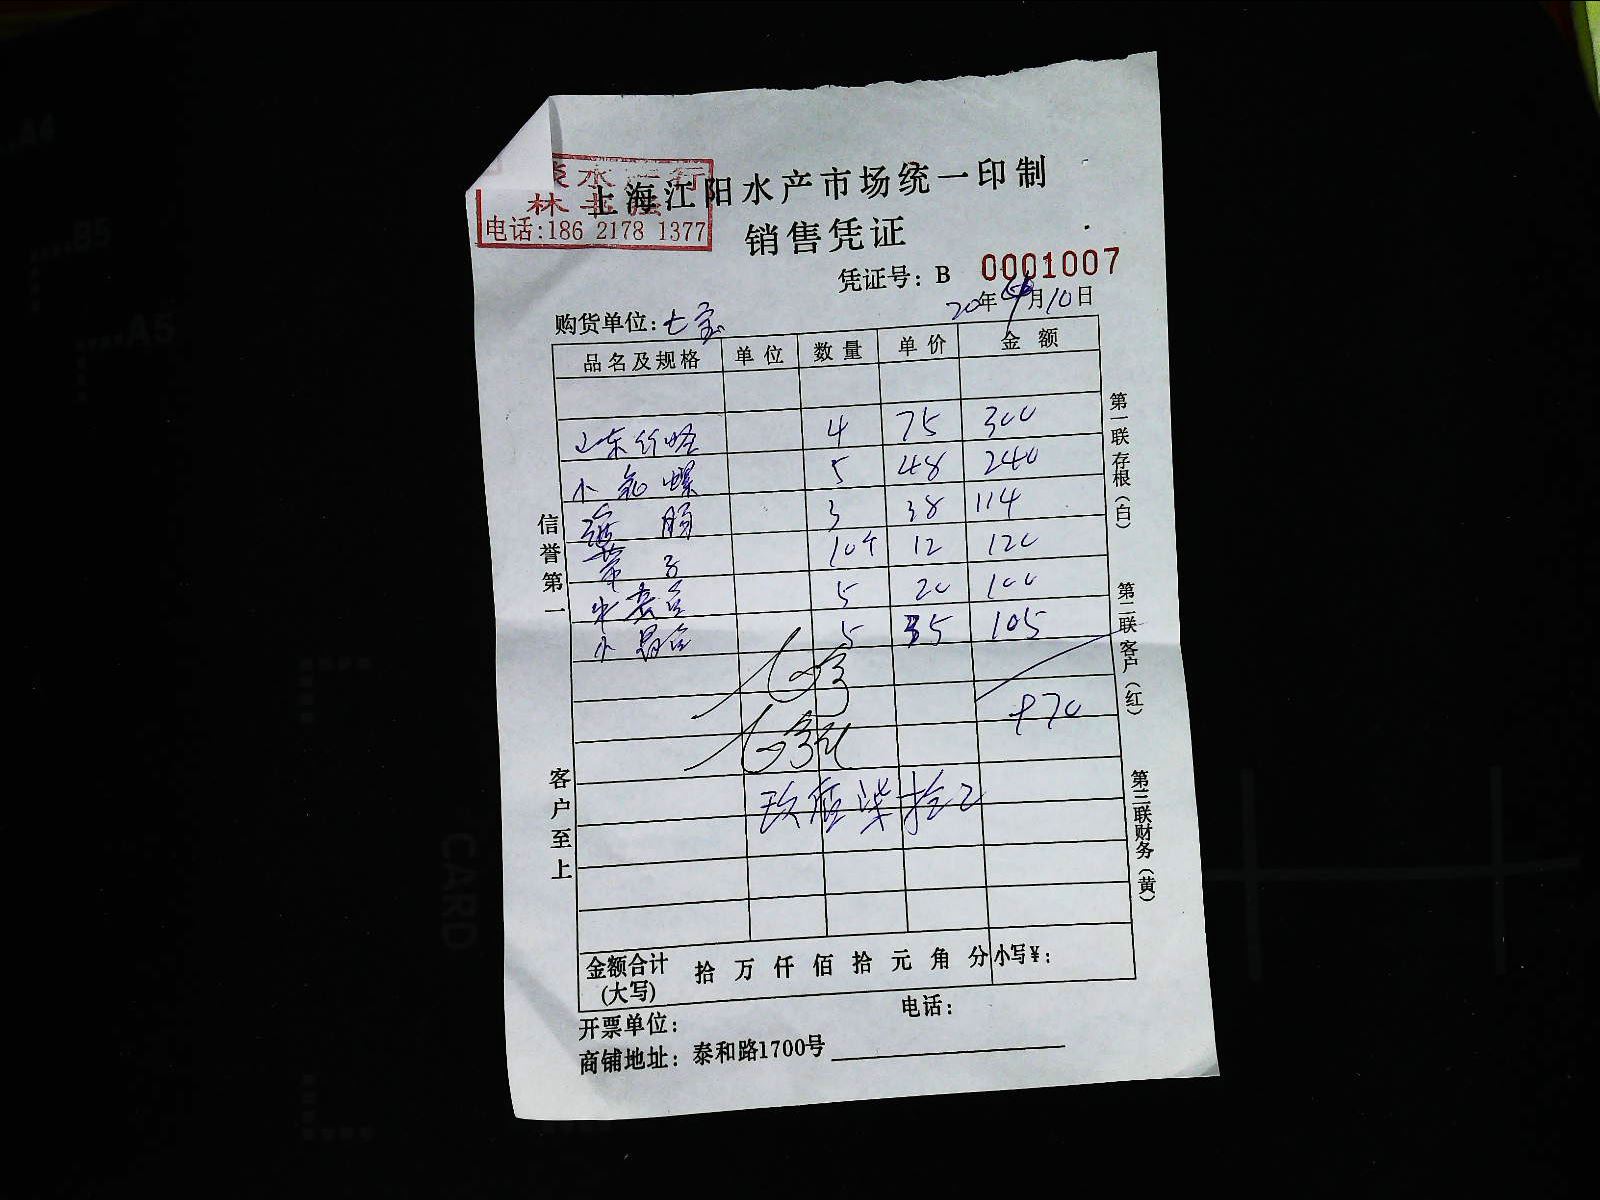 上海江阳水产市场统一印制
林
电话:186 2178 1377
销售凭证
凭证号: B 0001007
20年 月10日
购货单位: 七宝
品名及规格 单位 数量 单价 金额
山东竹蛏 4 75 300
小 螺 5 48 240
海肠 3 38 114
带子 10个 12 120
5 20 100
小 5 35 105
970
玖佰柒拾
金额合计(大写) 拾 万 仟 佰 拾 元 角 分 小写¥:
开票单位: 电话:
商铺地址: 泰和路1700号
信誉第一
客户至上
第一联存根(白)
第二联客户(红)
第三联财务(黄)